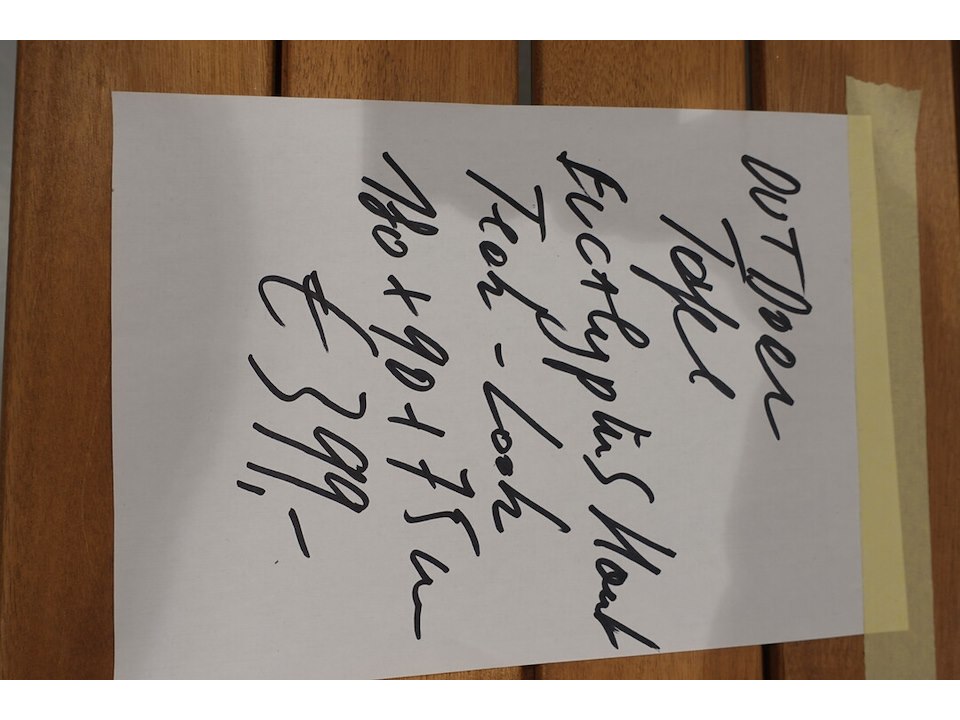 OUTDOOR
Tafel
Eucalyptus Hout
Teak-Look
180 x 90 x 75 cm
€ 399,-